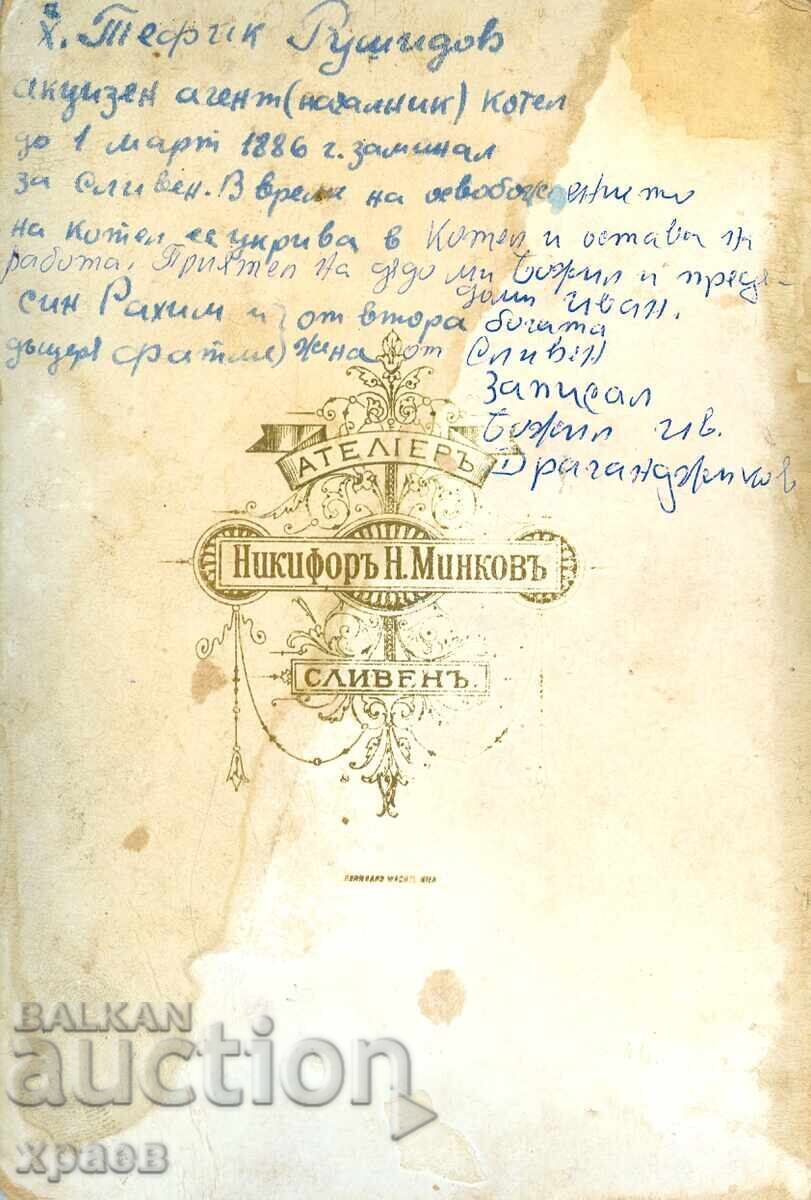 Х. Тефик Рушидов
акцизен агент (началник) Котел
до 1 март 1886 г. заминал
за Сливен. В време на освобождението
на Котел се укрива в Котел и остава на
работа. Приятел на дядо ми Божил и предя-
доми Иван.
син Рахим и от втора богата
дъщеря Фатме) жена от Сливен
Записал
Божил Ив.
Драганджиков
АТЕЛІЕРЪ
НИКИФОРЪ Н. МИНКОВЪ
СЛИВЕНЪ.
BERNHARD WACHTL WIEN
BALKAN
auction
храев